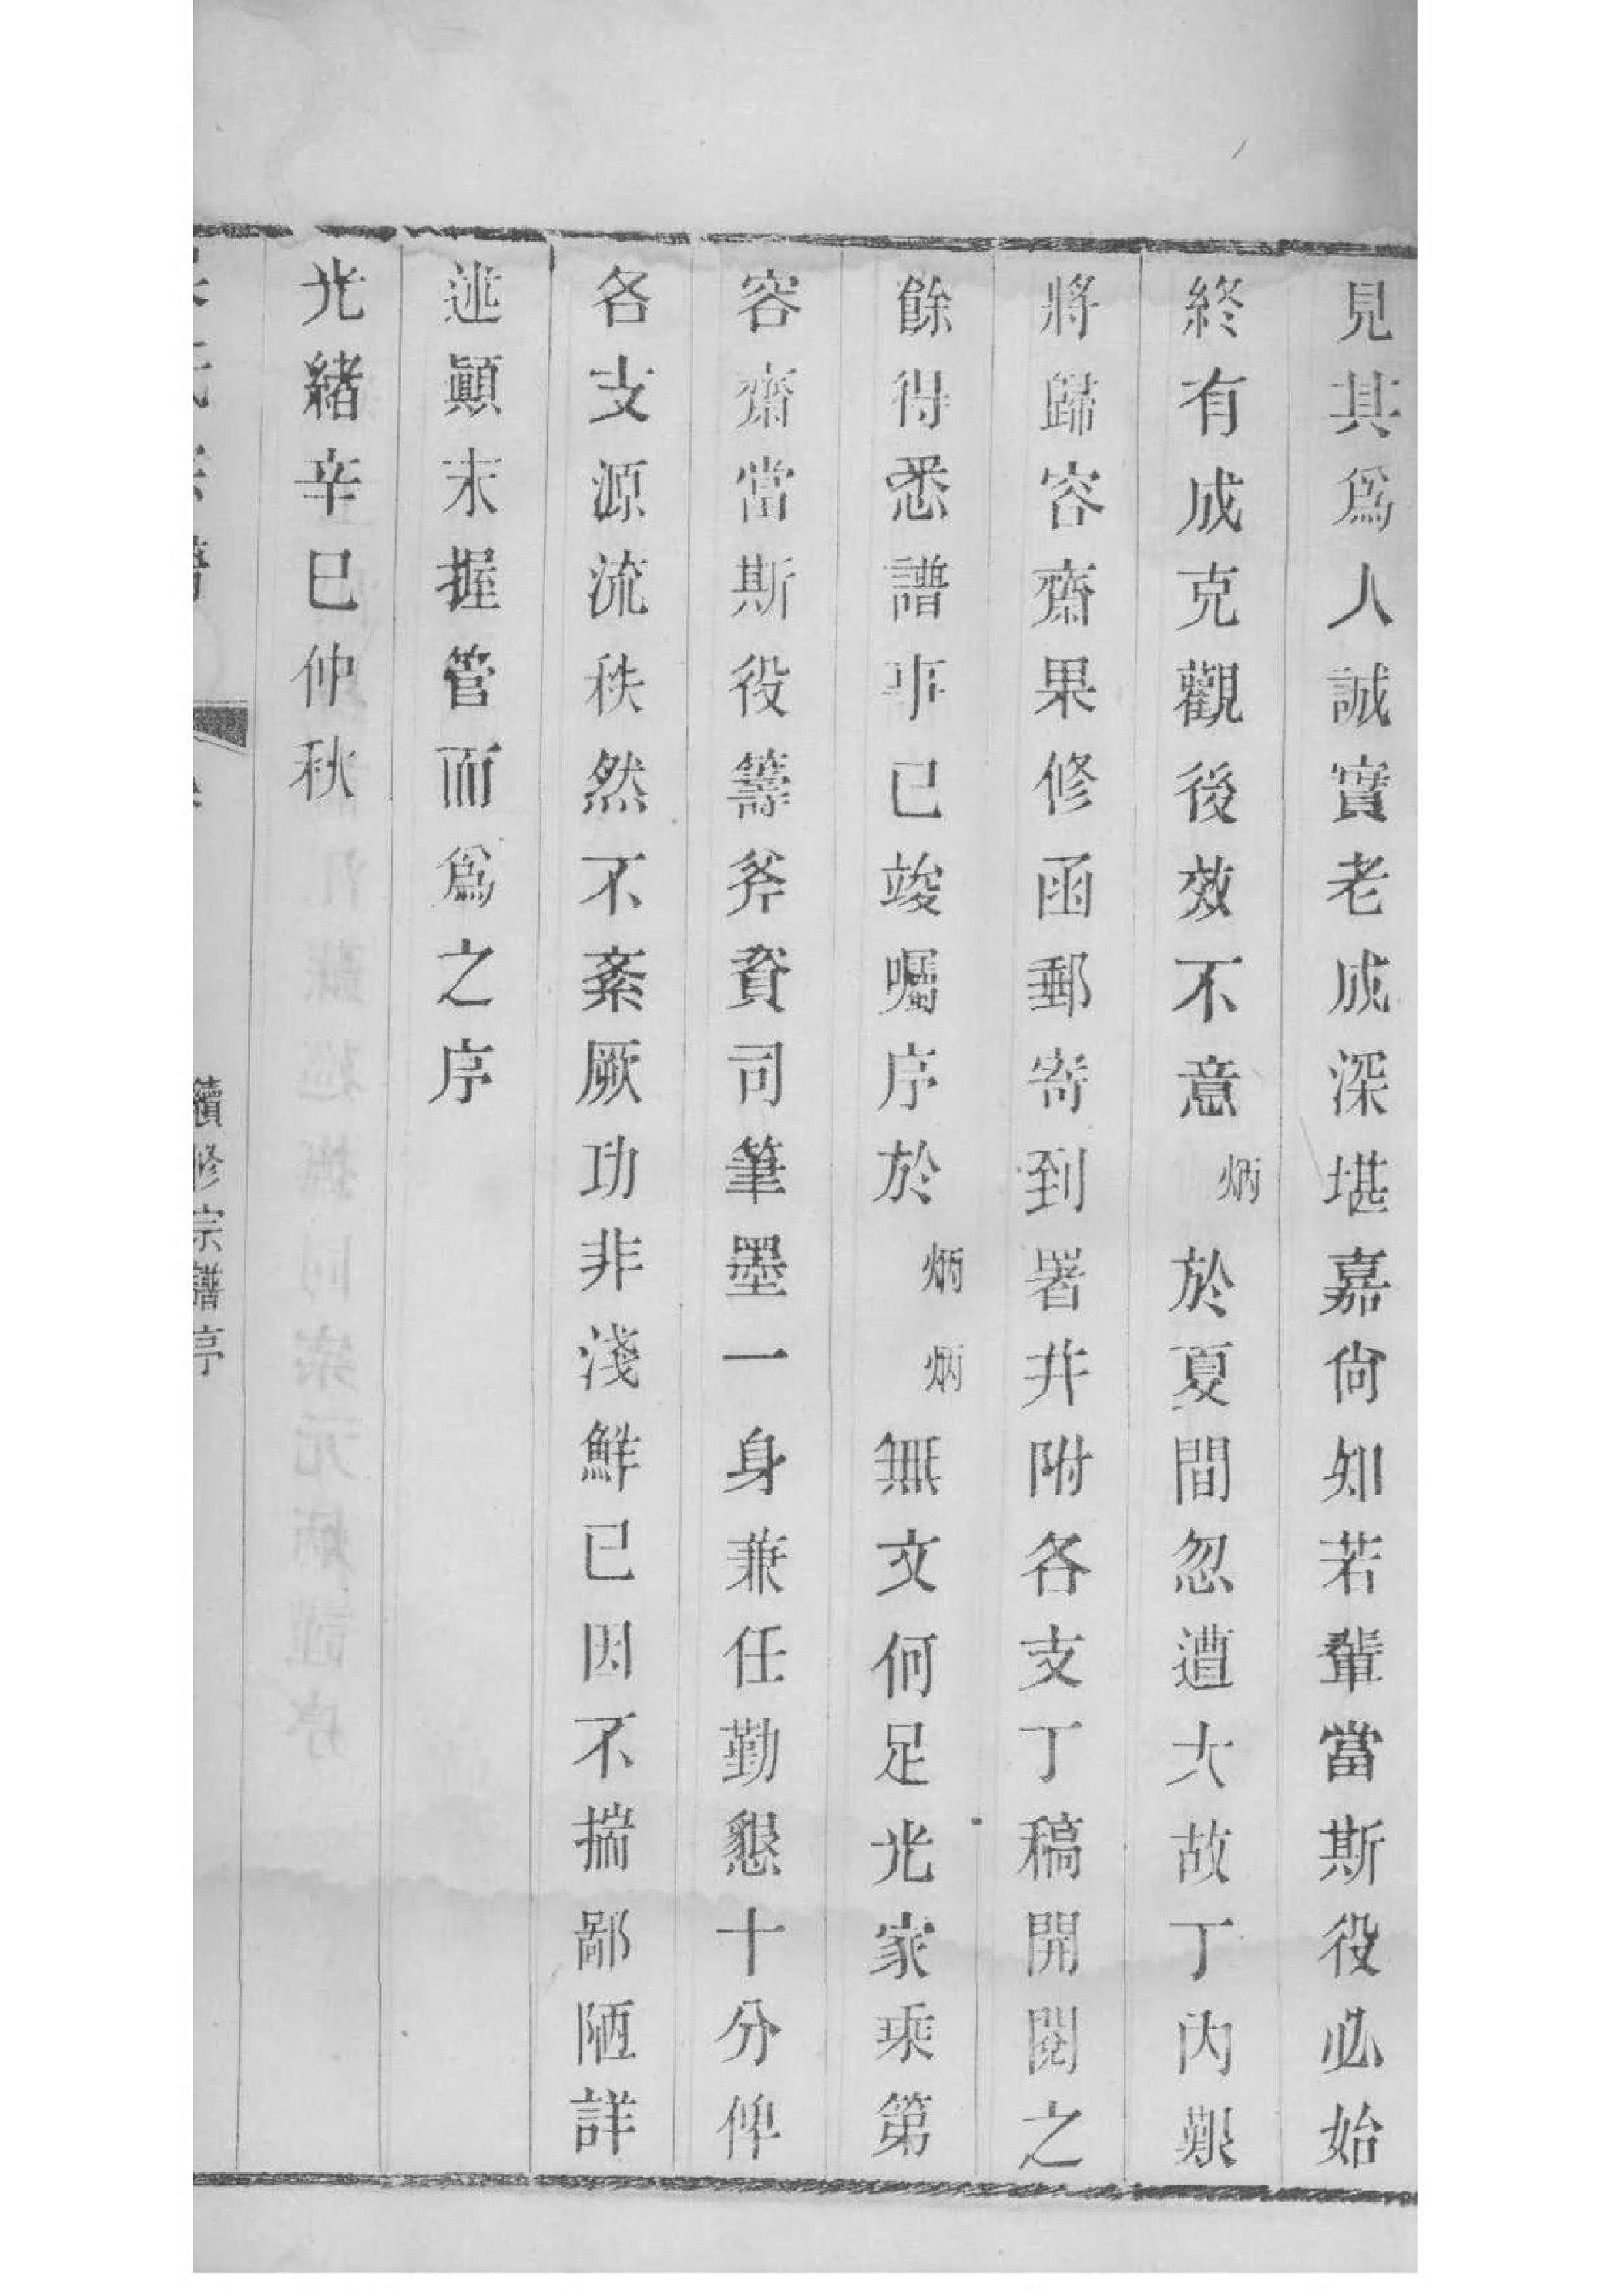 見其爲人誠實老成深堪嘉尙知若輩當斯役必始
終有成克觀後效不意炳於夏間忽遭大故丁內艱
將歸容齋果修函郵寄到署幷附各支丁稿開閱之
餘得悉譜事已竣囑序於炳炳無文何足光家乘第
容齋當斯役籌斧資司筆墨一身兼任勤懇十分俾
各支源流秩然不紊厥功非淺鮮已因不揣鄙陋詳
述顚末握管而爲之序
光緒辛巳仲秋
氏宗譜
續修宗譜序